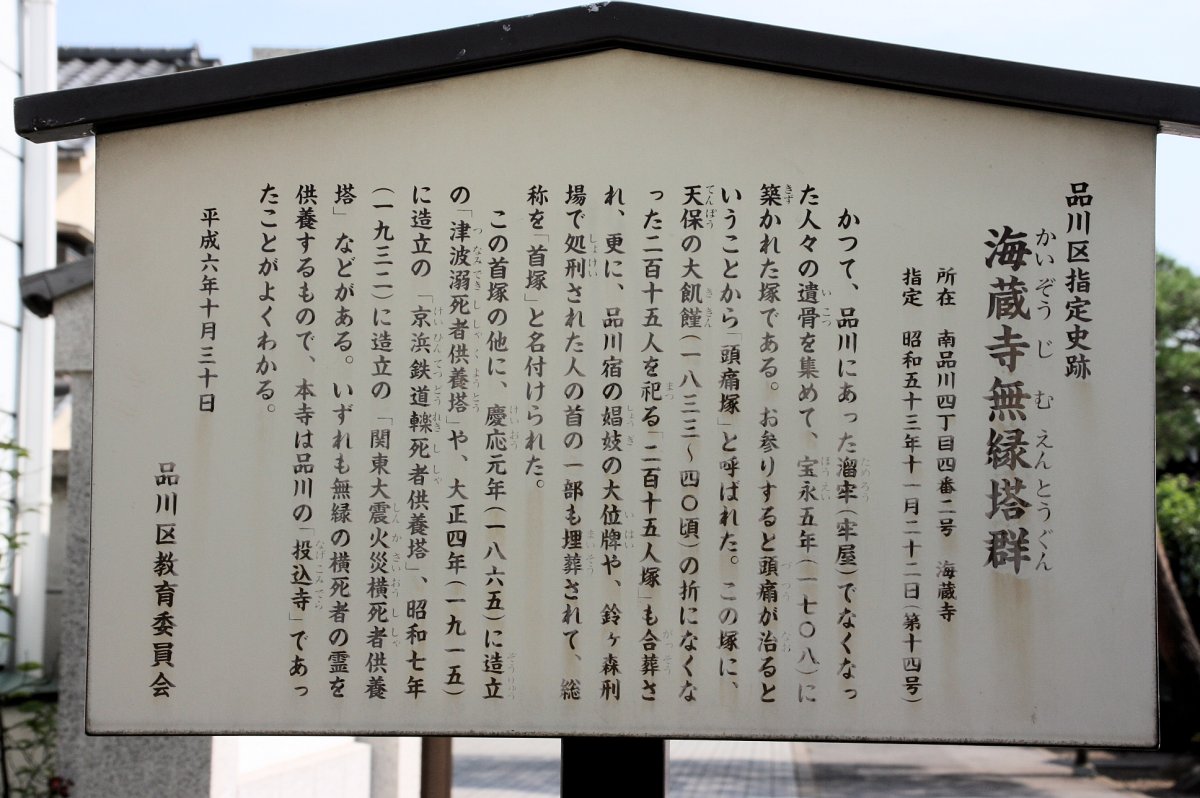 品川区指定史跡
海蔵寺無縁塔群
かいぞうじ むえんとうぐん
所在 南品川四丁目四番二号 海蔵寺
指定 昭和五十三年十一月二十二日(第十四号)
かつて、品川にあった溜牢(牢屋)でなくなっ
た人々の遺骨を集めて、宝永五年(一七〇八)に
築かれた塚である。お参りすると頭痛が治ると
いうことから「頭痛塚」と呼ばれた。この塚に、
天保の大飢饉(一八三三〜四〇頃)の折になくな
った二百十五人を祀る「二百十五人塚」も合葬さ
れ、更に、品川宿の娼妓の大位牌や、鈴ヶ森刑
場で処刑された人の首の一部も埋葬されて、総
称を「首塚」と名付けられた。
この首塚の他に、慶応元年(一八六五)に造立
の「津波溺死者供養塔」や、大正四年(一九一五)
に造立の「京浜鉄道轢死者供養塔」、昭和七年
(一九三二)に造立の「関東大震火災横死者供養
塔」などがある。いずれも無縁の横死者の霊を
供養するもので、本寺は品川の「投込寺」であっ
たことがよくわかる。
平成六年十月三十日
品川区教育委員会